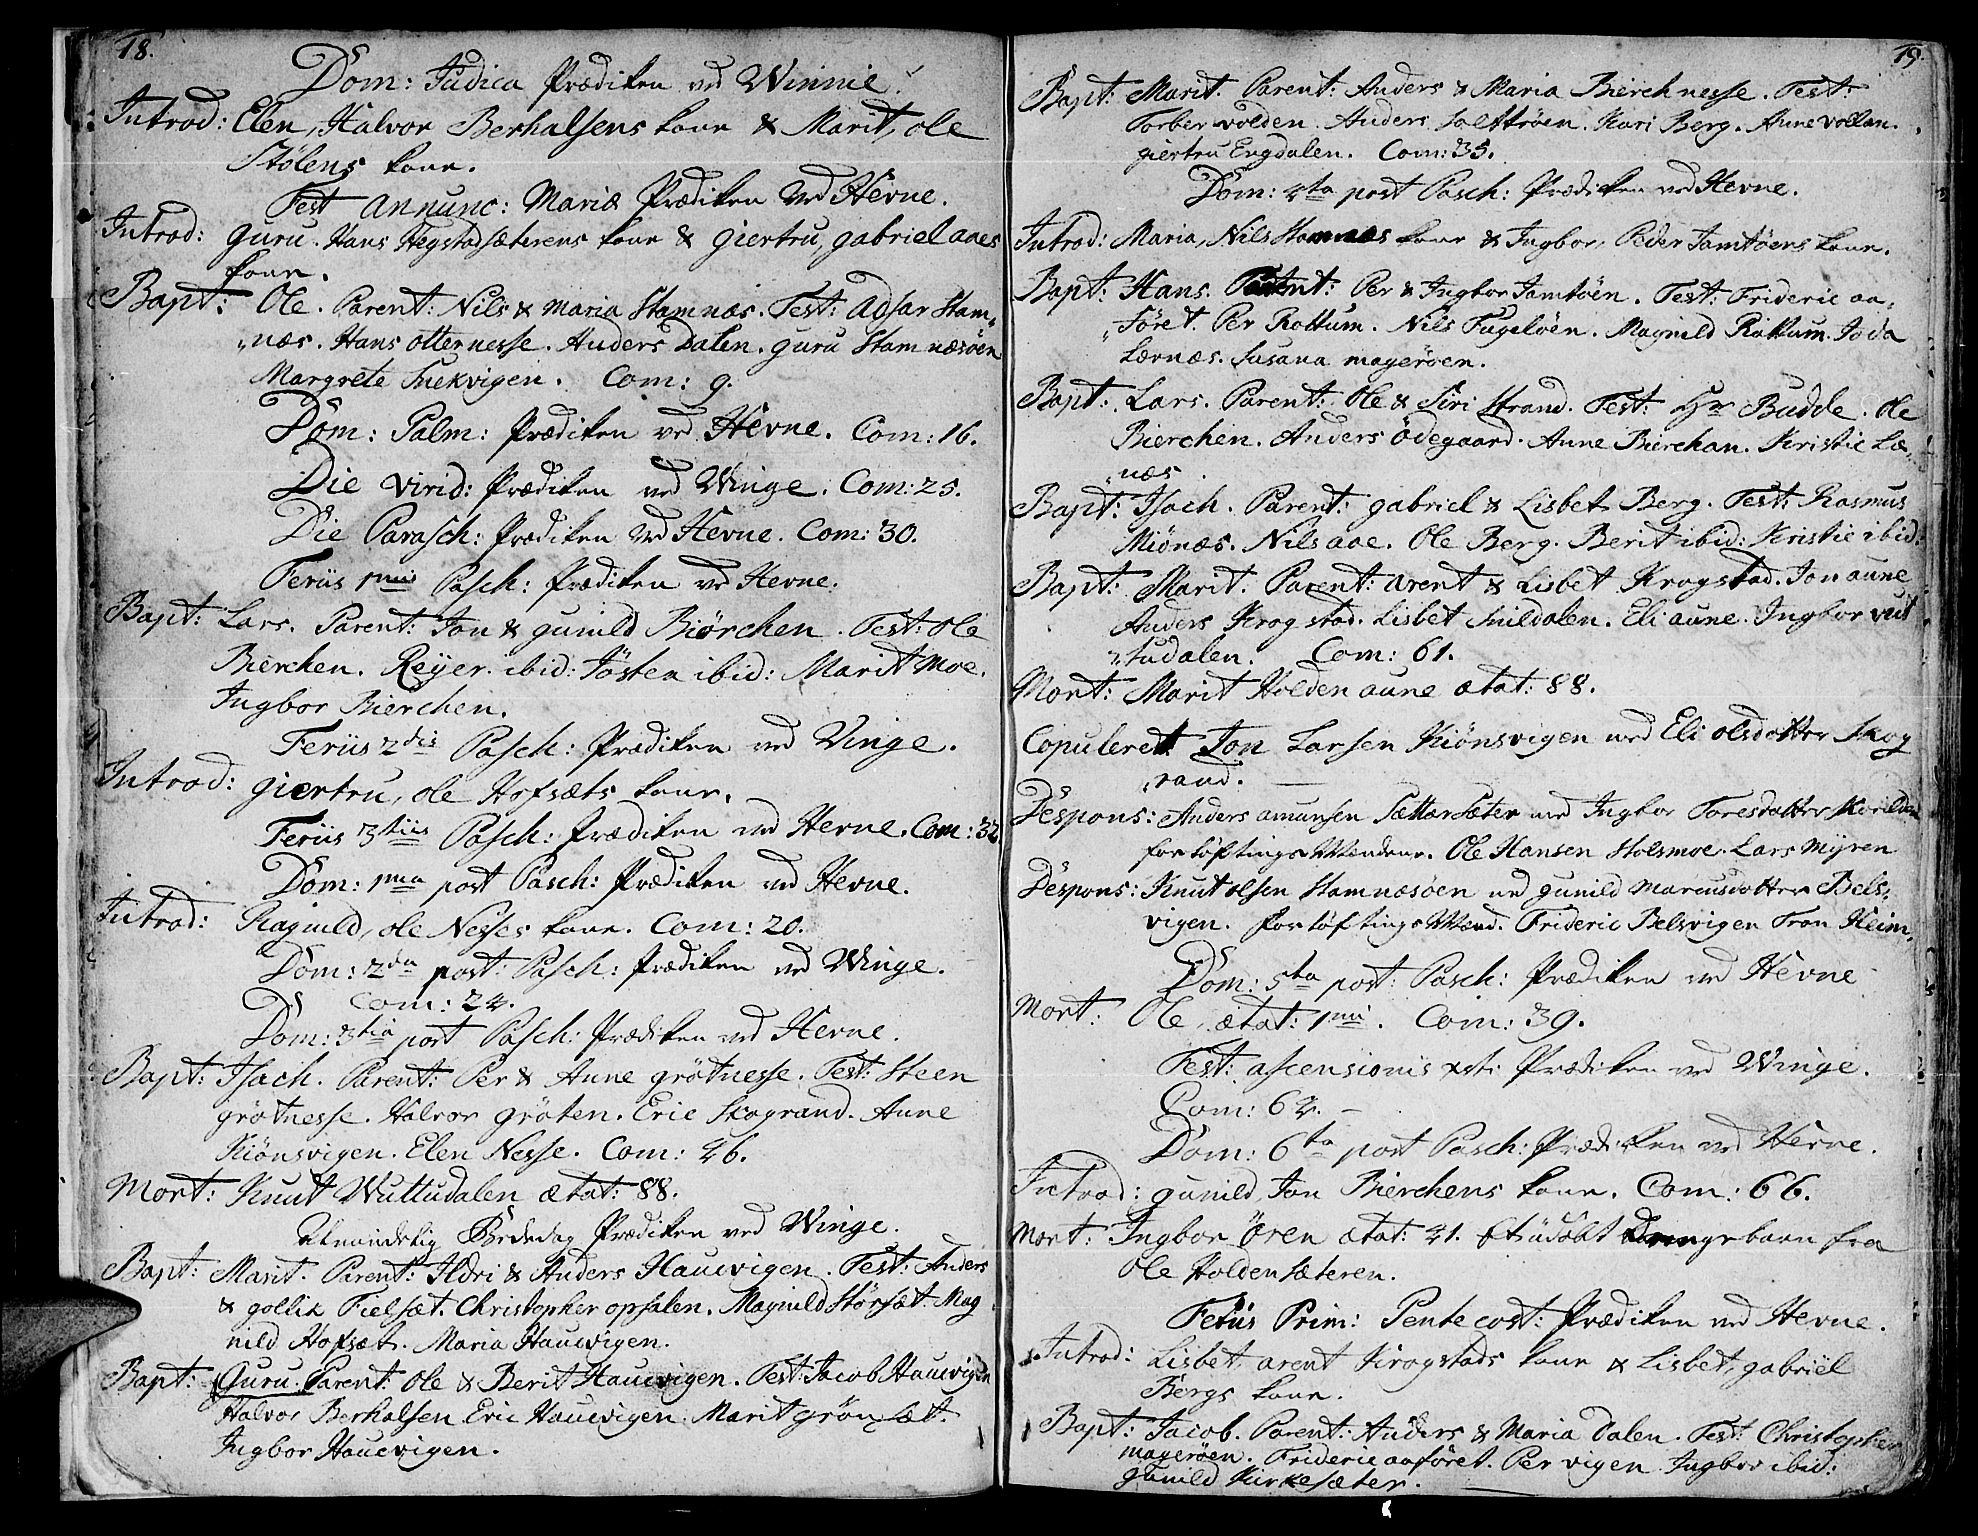 18.
Dom: Judica Prædiken ved Winnie.
Introd: Elen, Halvor Berhalsens kone & Marit, ole
Stølens kone.
Fest annunc: Mariæ Prædiken ved Hevne.
Introd: Guru. Hans Hegstadsæterens kone & giertru, gabriel aaes
kone.
Bapt: Ole. Parent: Nils & Maria Stamnæs. Test: Adsar Stam„
„næs. Hans otternesse. Anders Dalen. guru Stamnæsöen
Margrete Snekvigen. Com: 9.
Dom: Palm: Prædiken ved Hevne. Com: 16.
Die Virid: Prædiken ved Winge. Com: 25.
Die Parasch: Prædiken ved Hevne. Com: 30.
Feriis 1mis Pasch: Prædiken ved Hevne.
Bapt: Lars. Parent: Jon & gunild Biörchen. Test: Ole
Bierchen. Reyer ibid: Jösten ibid: Marit Moe.
Ingbor Bierchen.
Feriis 2dis Pasch: Prædiken ved Vinge.
Introd: giertru, ole Hofsæts kone.
Feriis 3tiis Pasch: Prædiken ved Hevne. Com: 32
Dom: 1ma post Pasch: Prædiken ved Hevne.
Introd: Ragnild, ole Nesses kone. Com: 20.
Dom: 2da post: Pasch: Prædiken ved Winge.
Com: 24.
Dom: 3tia post Pasch: Prædiken ved Hevne.
Bapt: Isach. Parent: Per & Anne grötnesse. Test: Steen
grötnesse. Halvor gröten. Eric Skogrand. Anne
Kiönsvigen. Elen Nesse. Com: 46.
Mort: Knut Wuttudalen ætat: 88.
Almindelig Bededag Prædiken ved Winge.
Bapt: Marit. Parent: Ildri & Anders Hauevigen. Test: Anders
& gollik Fielsæt. Christopher opsalen. Magnild Störsæt. Mag
nild Hofsæt. Maria Hauevigen.
Bapt: Guru. Parent: Ole & Berit Hauevigen. Test: Jacob Hauevigen
Halvor Berhalsen Eric Hauevigen. Marit grönsæt.
Ingbor Hauevigen.
19.
Bapt: Marit. Parent: Anders & Maria Bierchnesse. Test:
Torber volden. Anders Solttröen. Kari Berg. Anne vollan.
giertru Engdalen. Com: 35.
Dom: 4ta post Pasch: Prædiken ved Hevne.
Introd: Maria, Nils Stamnæs kone & Ingbor, Peder Jamtöens kone.
Bapt: Hans. Parent: Per & Ingbor Jamtöen. Test: Frideric aa„
„föret. Per Rottum. Nils Fugelöen. Magnild Rottum. Joda
Lernæs. Susana mageröen.
Bapt: Lars. Parent: Ole & Siri Strand. Test: Hr Budde. Ole
Bierchen. Anders Ödegaard. Anne Bierchan. Kristie Læ„
„næs.
Bapt: Isach. Parent: gabriel & Lisbet Berg. Test: Rasmus
Miönæs. Nils aae. Ole Berg. Berit ibid: Kristie ibid:
Bapt: Marit. Parent: arent & Lisbet Krogstad. Jon aune
Anders Krogstad. Lisbet Snildalen. Eli aune. Ingbor vut
„tudalen. Com: 61.
Mort: Marit Holdenaune ætat: 88.
Copuleret: Jon Larsen Kiönsvigen med Eli olsdotter Skog
„rand.
Despons: Anders amunsen Sættersæter med Ingbor Toresdotter
forlöftings Mændene. Ole Hansen Holsmoe. Lars Myren
Despons: Knut olsen Stamnæsöen med gunild Marcusdotter Bels„
vigen. forlöftings Mænd. Frideric Belsvigen Tron Heim„
Dom: 5ta post: Pasch: Prædiken ved Hevne
Mort: Ole, ætat: 1mi. Com: 39.
Fest: ascensionis xsti Prædiken ved Winge.
Com: 64.
Dom: 6ta post Pasch: Prædiken ved Hevne.
Introd: gunild, Jon Bierchens kone. Com: 66.
Mort: Ingbor Ören ætat: 41. Et udöbt Drengebarn fra
Ole Holdensæteren.
Feriis Prim: Pentecost: Prædiken ved Hevne.
Introd: Lisbet, arent Krogstads kone & Lisbet, gabriel
Bergs kone.
Bapt: Jacob. Parent: Anders & Maria Dalen. Test: Christopher
mageröen. Frideric aaföret. Per vigen Ingbor ibid:
gunild Kirkesæter.